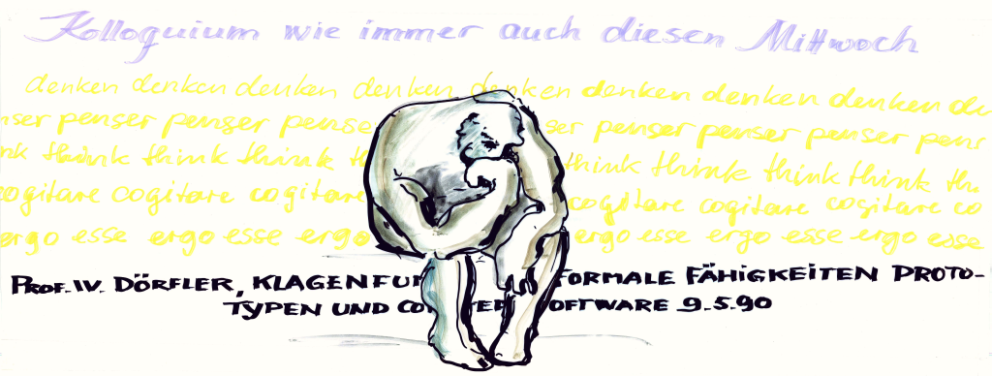 Kolloquium wie immer auch diesen Mittwoch
denken denken denken denken denken denken denken denken
penser penser penser penser penser penser penser
think think think think think think think
cogitare cogitare cogitare cogitare cogitare cogitare
ergo esse ergo esse ergo ergo esse ergo esse ergo esse
PROF. W. DÖRFLER, KLAGENFU FORMALE FÄHIGKEITEN PROTO-
TYPEN UND CO TER SOFTWARE 9.5.90